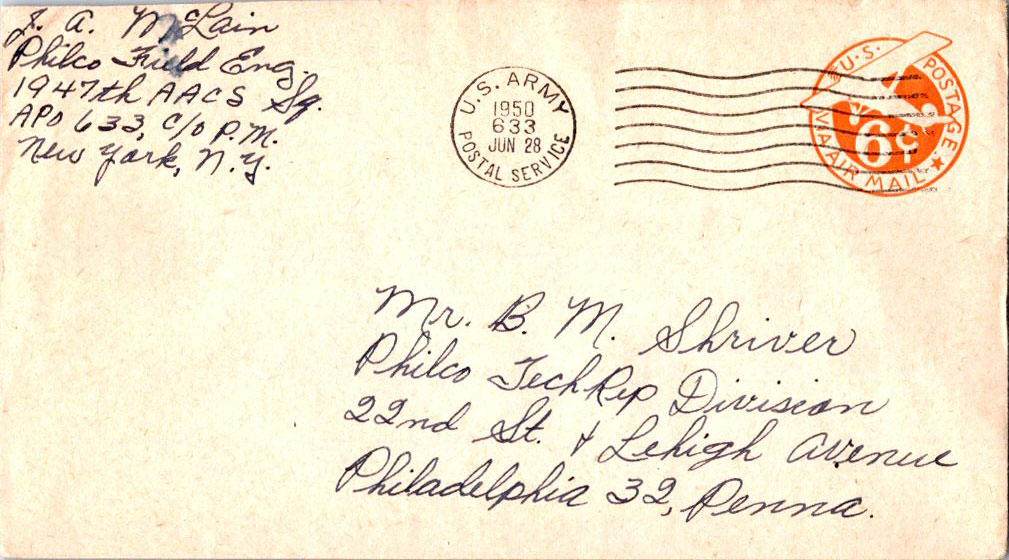 J. A. McLain
Philco Field Eng.
1947th AACS Sq.
APO 633, c/o P.M.
New York, N.Y.
U.S. ARMY
1950
633
JUN 28
POSTAL SERVICE
U.S. POSTAGE
6¢
VIA AIR MAIL
Mr. B. M. Shriver
Philco TechRep Division
22nd St. & Lehigh Avenue
Philadelphia 32, Penna.